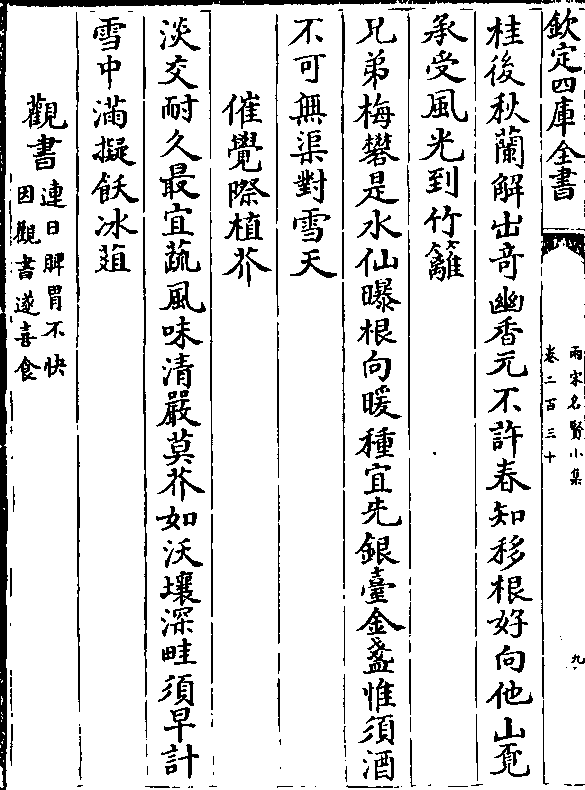 欽定四庫全書
兩宋名賢小集
卷二百三十
九
桂後秋蘭解出竒幽香元不許春知移根好向他山覔
承受風光到竹籬
兄弟梅礬是水仙曝根向暖種宜先銀臺金盞惟須酒
不可無渠對雪天
催覺際植芥
淡交耐久最宜蔬風味清嚴莫芥如沃壤深畦須早計
雪中滿擬飫冰葅
觀書連日脾胃不快
因觀書遂喜食